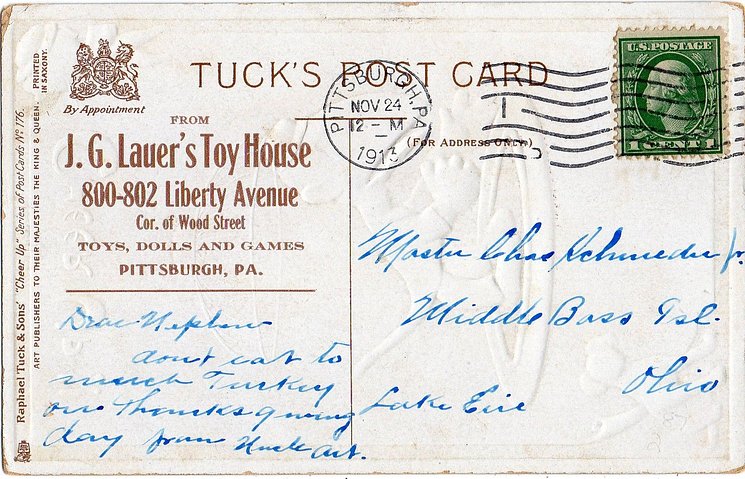 TUCK'S POST CARD
By Appointment
FROM
J. G. Lauer's Toy House
800-802 Liberty Avenue
Cor. of Wood Street
TOYS, DOLLS AND GAMES
PITTSBURGH, PA.
(FOR ADDRESS ONLY)
PITTSBURGH, PA
NOV 24
12 - M
1913
U.S. POSTAGE
1 CENT 1
Raphael Tuck & Sons' "Cheer Up" Series of Post Cards No 176.
ART PUBLISHERS TO THEIR MAJESTIES THE KING & QUEEN.
PRINTED
IN SAXONY.
Dear Nephew
dont eat to
much Turkey
on thanksgiving
day from Uncle Art.
Master Chas Schmeder Jr.
Middle Bass Isl.
Ohio
Lake Eire